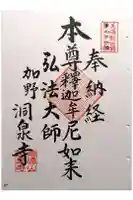 奉納経
本尊釋迦牟尼如来
弘法大師
加野洞泉寺